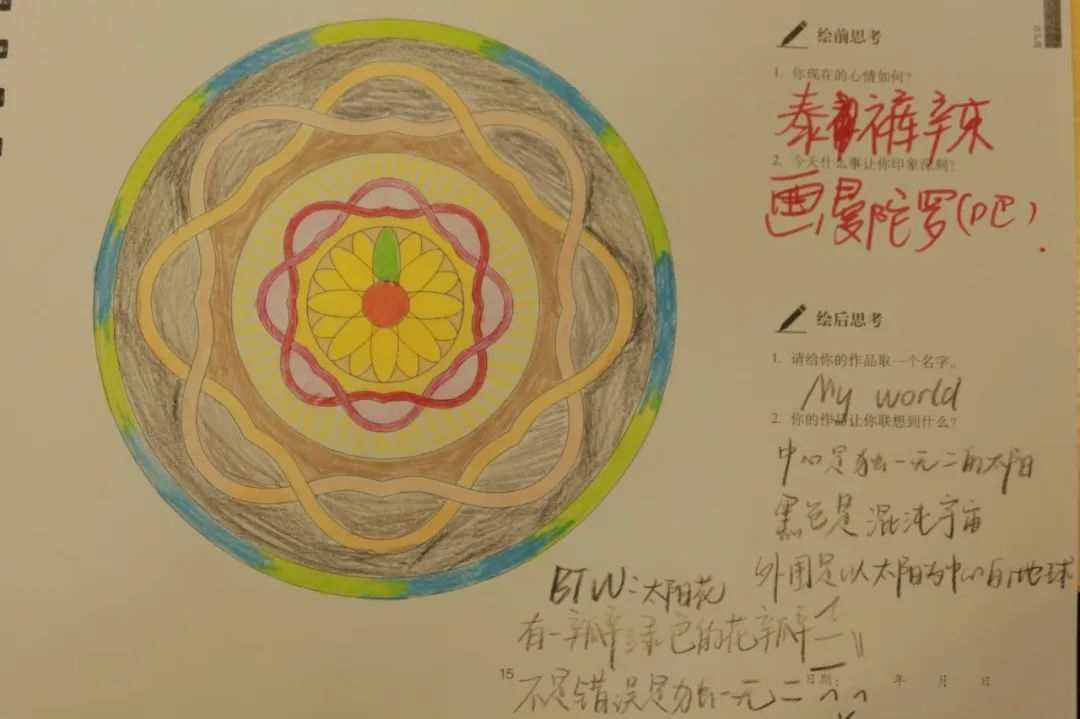 绘前思考
1. 你现在的心情如何?
泰裤辣
2. 今天什么事让你印象深刻?
画曼陀罗(吧)
绘后思考
1. 请给你的作品取一个名字。
My world
2. 你的作品让你联想到什么?
中心是独一无二的太阳
黑色是混沌宇宙
外围是以太阳为中心的地球
BTW:太阳花
有一瓣绿色的花瓣
不是错误是独一无二
15
日期: 年 月 日